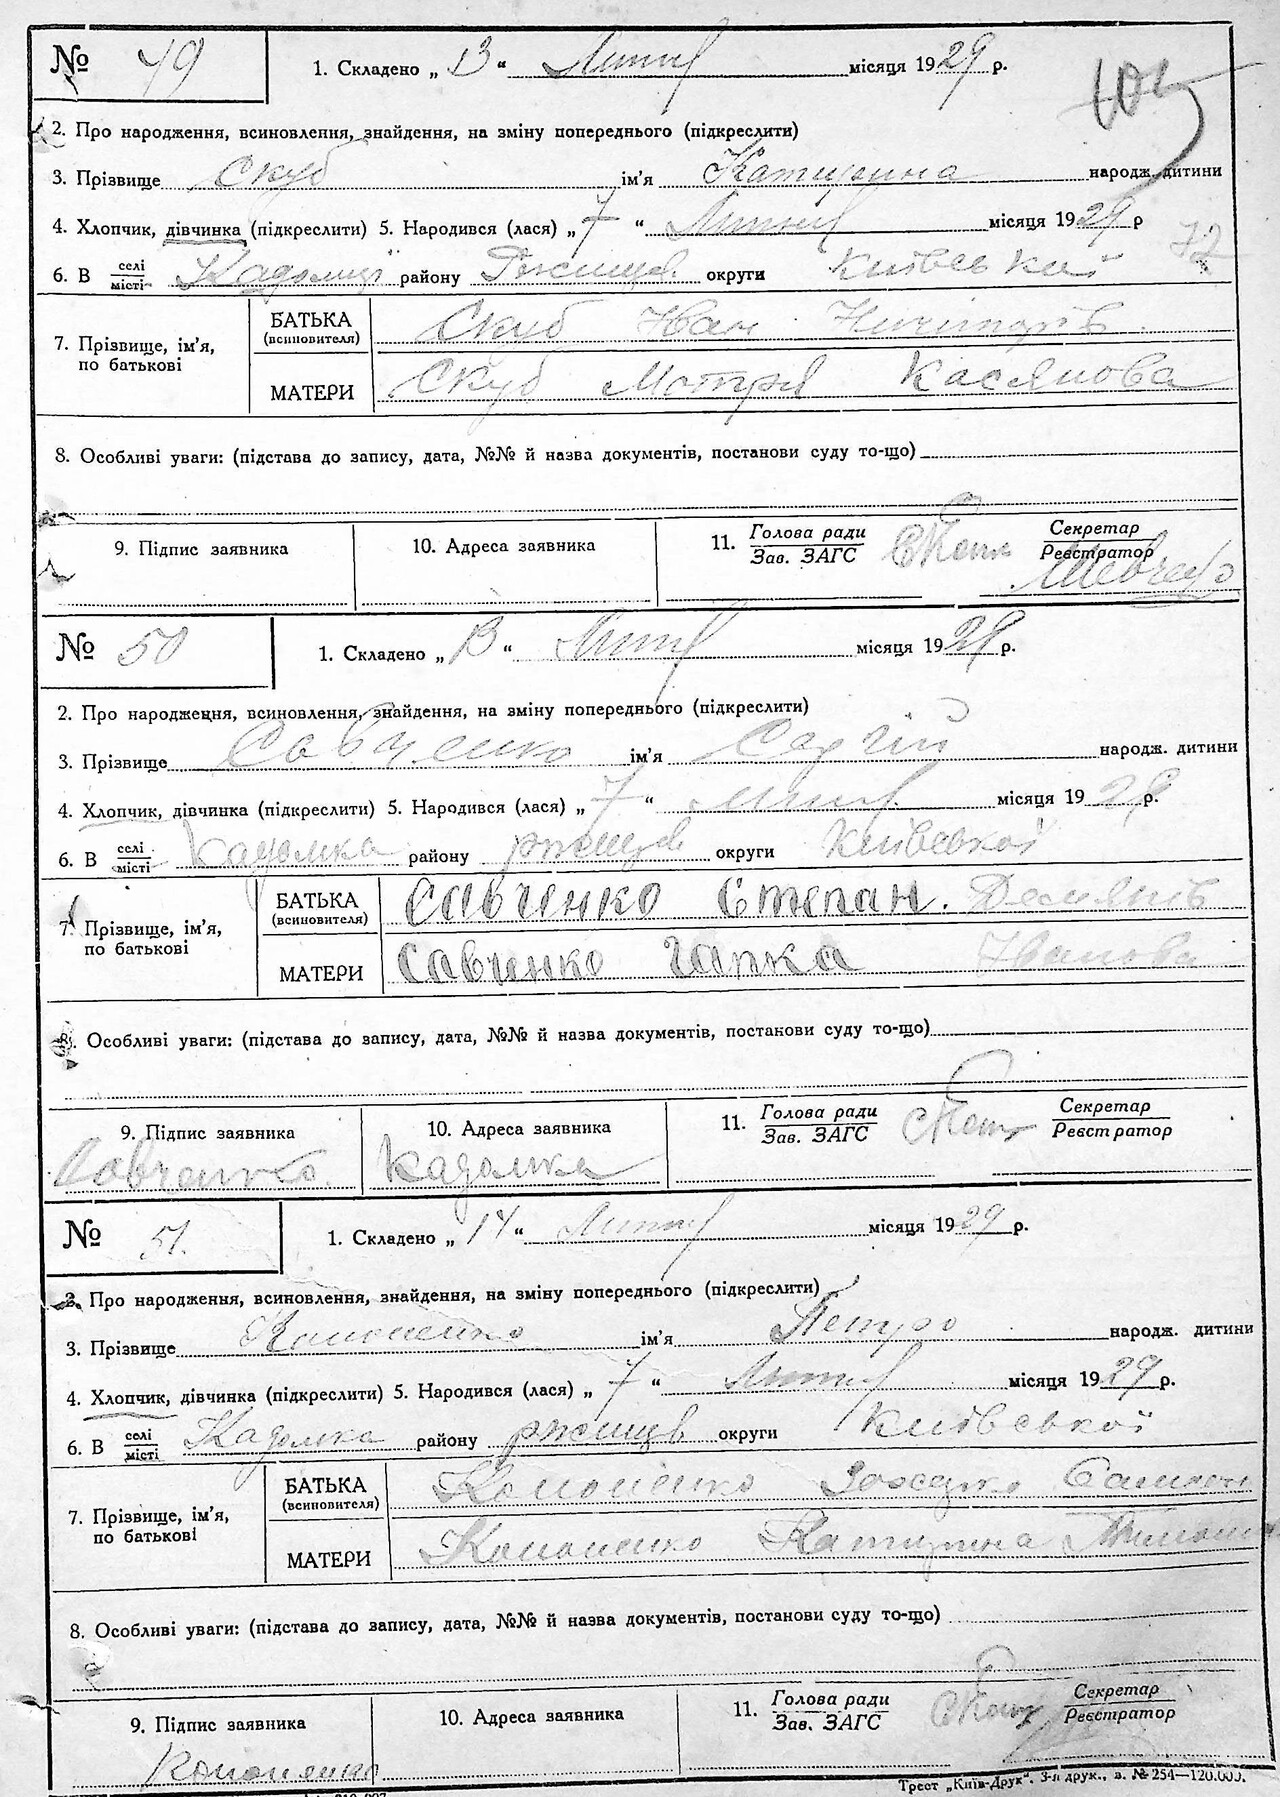 № 49 1. Складено „ 13 “ місяця 1929 р.
105
2. Про народження, всиновлення, знайдення, на зміну попереднього (підкреслити)
3. Прізвище Скуб ім'я Катирина народж. дитини
4. Хлопчик, дівчинка (підкреслити) 5. Народився (лася) „ 7 “ місяця 1929 р
72
6. В селі місті района Київської
7. Прізвище, ім'я, по батькові
БАТЬКА (всиновителя) Скуб Іван Ничипорів
МАТЕРИ Скуб Мотря Касянова
8. Особливі уваги: (підстава до запису, дата, №№ й назва документів, постанови суду то-що)
9. Підпис заявника 10. Адреса заявника 11. Голова ради Зав. ЗАГС Секретар Реєстратор
№ 50 1. Складено „ 13 “ місяця 1929 р.
2. Про народження, всиновлення, знайдення, на зміну попереднього (підкреслити)
3. Прізвище Савченко ім'я народж. дитини
4. Хлопчик, дівчинка (підкреслити) 5. Народився (лася) „ 7 “ місяця 1929 р.
6. В селі місті Кадомка району ржищів округи Київської
7. Прізвище, ім'я, по батькові
БАТЬКА (всиновителя) Савченко Степан. Демянів
МАТЕРИ Савченко Гапка Іванова
8. Особливі уваги: (підстава до запису, дата, №№ й назва документів, постанови суду то-що)
9. Підпис заявника 10. Адреса заявника 11. Голова ради Зав. ЗАГС Секретар Реєстратор
Савченко. Кадомка
№ 51. 1. Складено „ 14 “ місяця 1929 р.
2. Про народження, всиновлення, знайдення, на зміну попереднього (підкреслити)
3. Прізвище Кононенко ім'я Петро народж. дитини
4. Хлопчик, дівчинка (підкреслити) 5. Народився (лася) „ 7 “ місяця 1929 р.
6. В селі місті Кадомка району ржищів округи Київської
7. Прізвище, ім'я, по батькові
БАТЬКА (всиновителя) Кононенко
МАТЕРИ Кононенко Катирина
8. Особливі уваги: (підстава до запису, дата, №№ й назва документів, постанови суду то-що)
9. Підпис заявника 10. Адреса заявника 11. Голова ради Зав. ЗАГС Секретар Реєстратор
Кононенко
Трест „Київ-Друк“. 3-я друк., з. № 254—120.000.